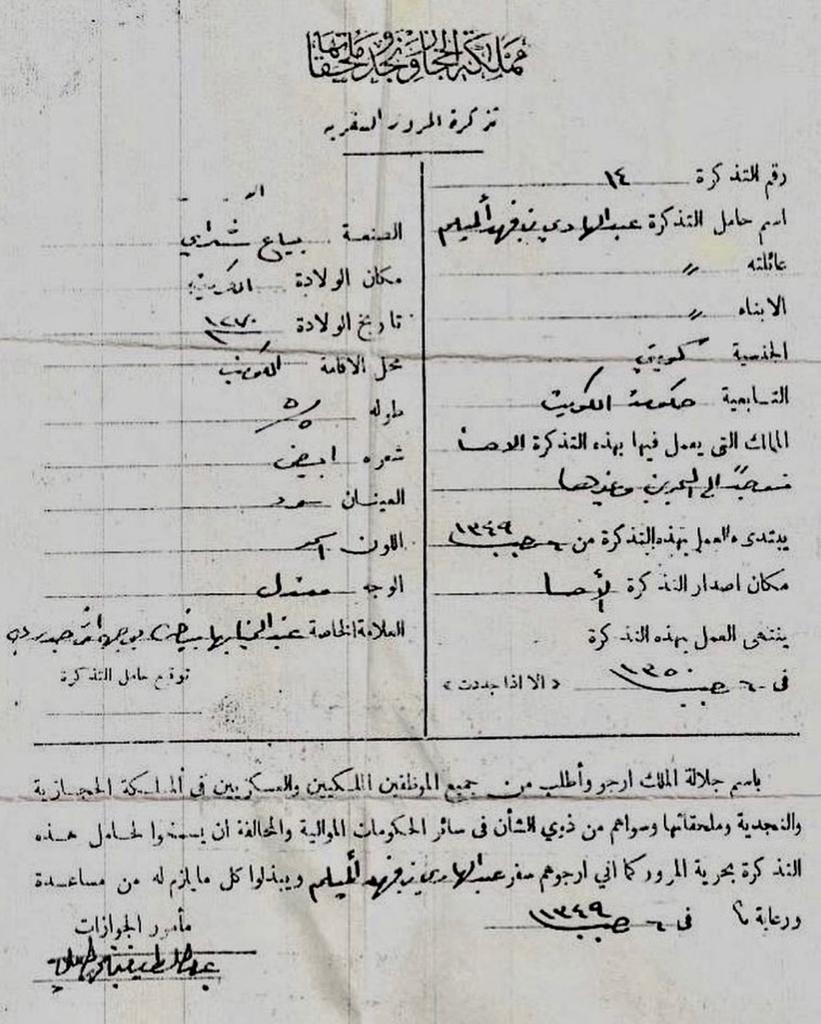 مملكة الحجاز ونجد وملحقاتها
تذكرة المرور السفرية
رقم التذكرة ١٤
اسم حامل التذكرة عبد الهادي بن فهد الميلم
عائلته 〃
الابناء 〃
الجنسية كويتي
التابعية حكومة الكويت
الممالك التي يعمل فيها بهذه التذكرة الاحسا
متوجهاً الى البحرين وغيرها
يبتدىء العمل بهذه التذكرة من ٦ رجب ١٣٤٩
مكان اصدار التذكرة الأحسا
ينتهى العمل بهذه التذكرة
فى ٦ رجب ١٣٥٠ «الا اذا جددت»
الصنعة بياع
مكان الولادة الكويت
تاريخ الولادة ١٢٧٠
محل الاقامة الكويت
طوله ٥/٥
شعره ابيض
العينان سود
اللون اسمر
الوجه معتدل
العلامة الخاصة
توقيع حامل التذكرة
باسم جلالة الملك ارجو وأطلب من جميع الموظفين الملكيين والعسكريين فى المملكة الحجازية
والنجدية وملحقاتها وسواهم من ذوي الشأن فى سائر الحكومات الموالية والمحالفة ان يسمحوا لحامل هذه
التذكرة بحرية المرور كما اني ارجوهم سفر عبد الهادي بن فهد الميلم ويبذلوا كل ما يلزم له من مساعدة
ورعاية فى ٦ رجب ١٣٤٩
مأمور الجوازات